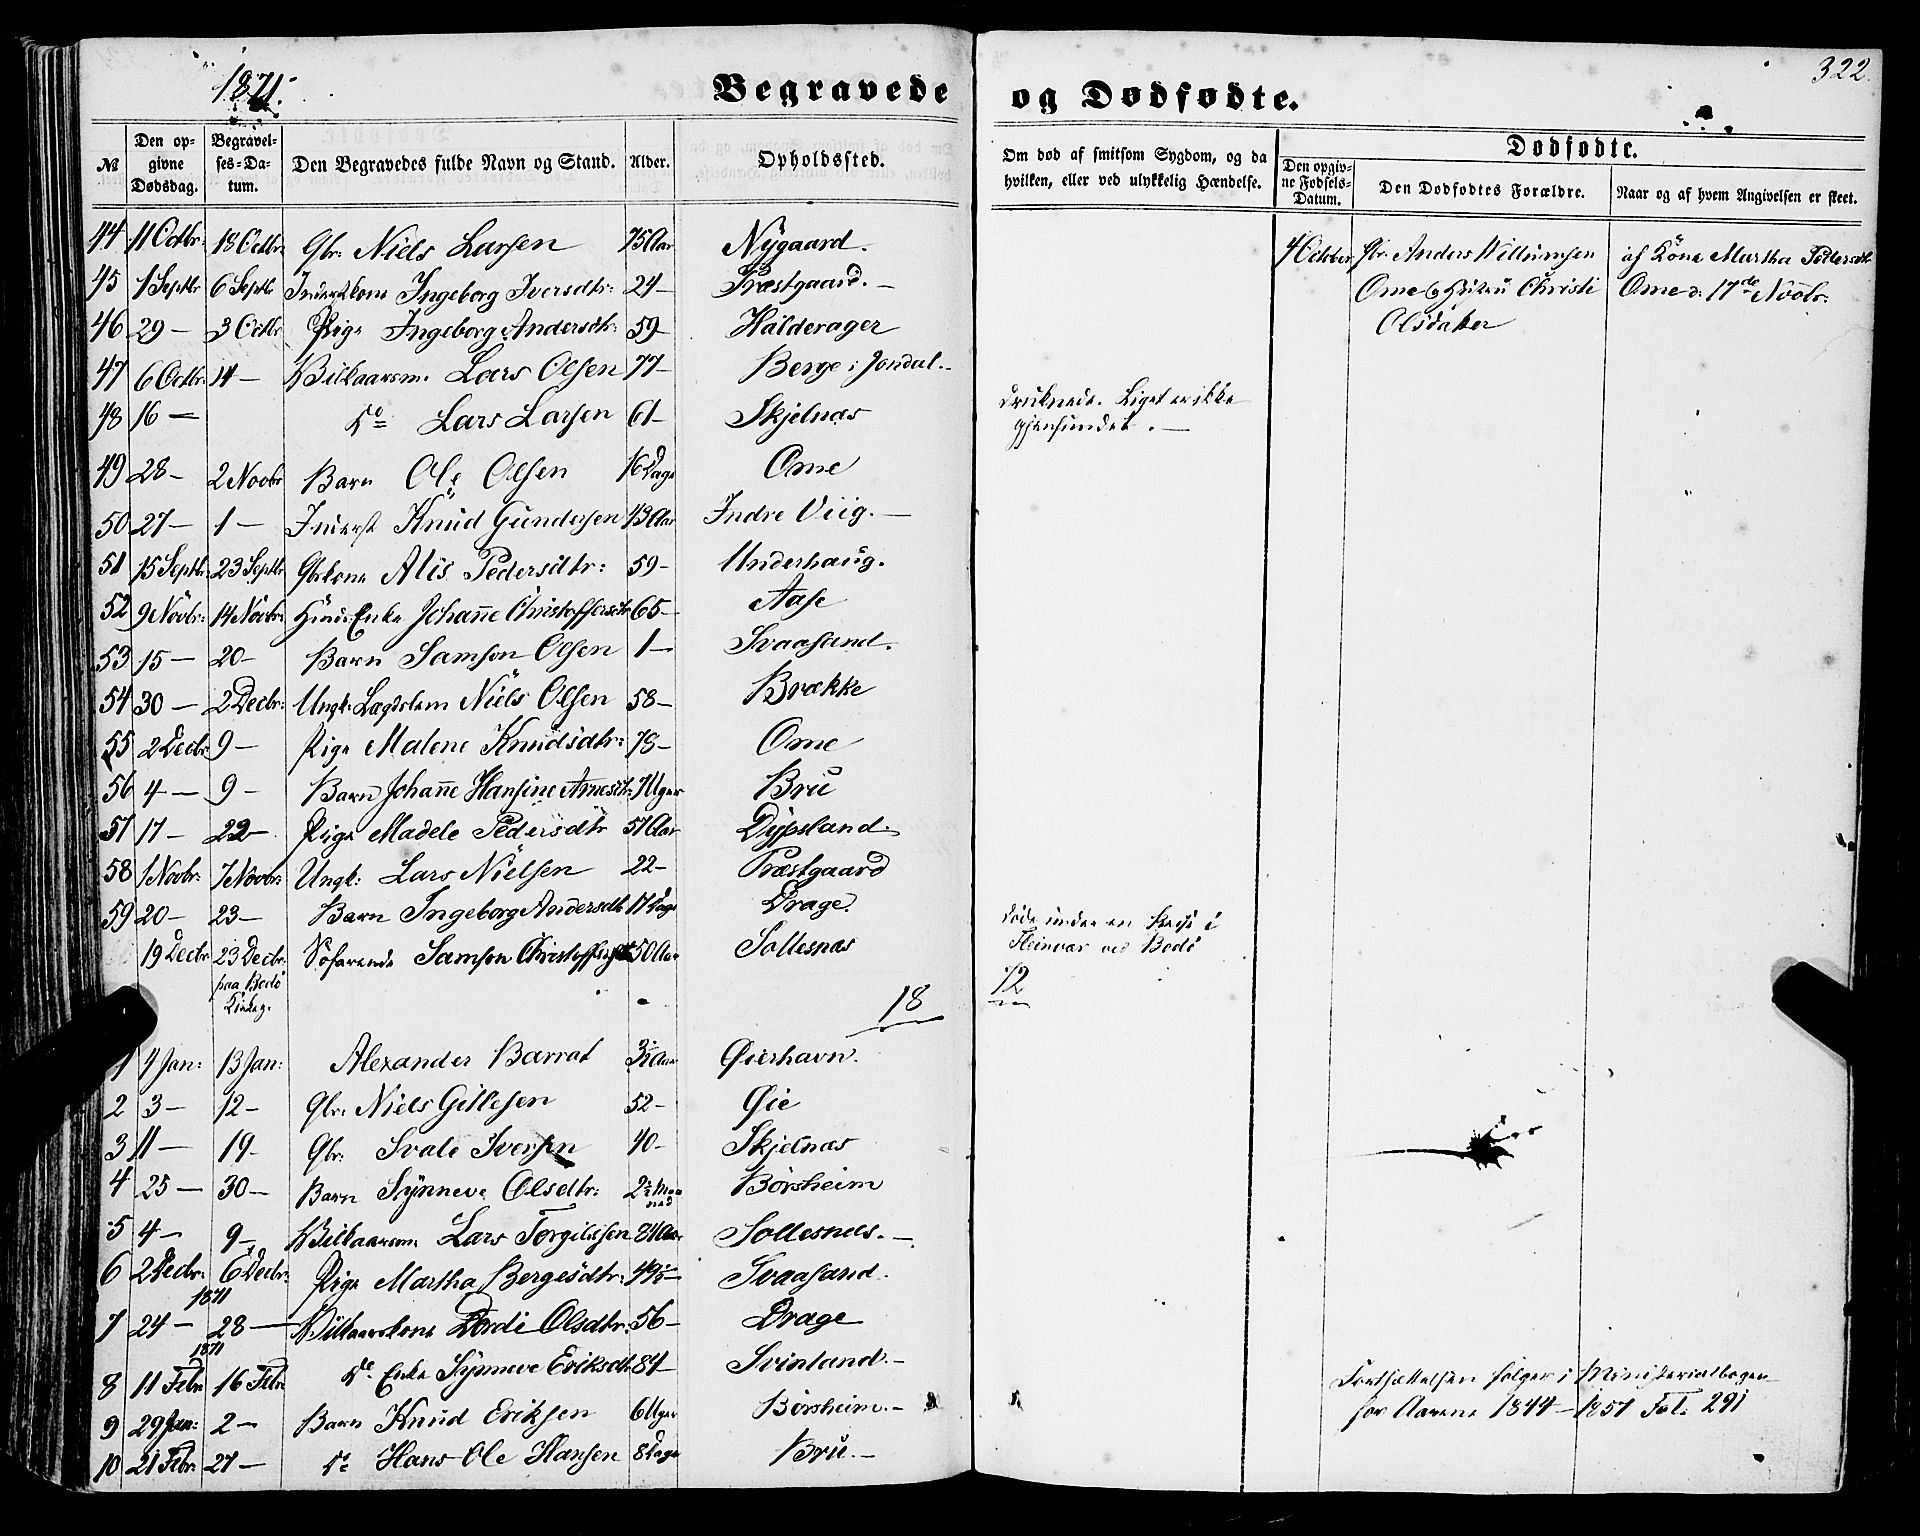 1871.
322.
Begravede og Dødfødte.
№
Den opgivne Dødsdag.
Begravelses-Datum.
Den Begravedes fulde Navn og Stand.
Alder.
Opholdssted.
Om død af smitsom Sygdom, og da hvilken, eller ved ulykkelig Hændelse.
Dødfødte.
Den opgivne Fødsels-Datum.
Den Dødfødtes Forældre.
Naar og af hvem Angivelsen er skeet.
44 11 Octbr: 18 Octbr: Gbr: Niels Larsen 75 Aar Nÿgaard.
45 1 Septbr 6 Septbr Inderstkone Ingeborg Iversdtr: 24 – Præstgaard. –
46 29 – 3 Octbr Pige Ingeborg Andersdtr: 59 – Halderager
47 6 Octbr: 14 – Kÿllaarsm. Lars Olsen 77 – Berge i Jondal. –
48 16 – do Lars Larsen 61 – Skjelnæs
druknede. Liget er ikke
gjenfundet. –
49 28 – 2 Novbr Barn Ole Olsen 16 Dage Ome
50 27 – 1 – Inderst Knud Gundersen 43 Aar Indre Viig. –
51 15 Septbr: 23 Septbr Gbrkone Alis Pedersdtr: 59 – Underhaug.
52 9 Novbr: 14 Novbr: Enke Johanne Christoffersdtr 65 – Aase
53 15 – 20 – Barn Samson Olsen 1 – Svaasand.
54 30 – 2 Decbr: Ungk: Lægdslem Niels Olsen 58 – Brække
55 2 Decbr 9 – Pige Malene Knudsdtr: 78 – Ome
56 4 – 9 – Barn Johanne Hansine Arnesdtr 7 Uger Bru
57 17 – 22 – Pige Madele Pedersdtr 57 Aar Dÿpsland.
58 1 Novbr: 7 Novbr: Ungk: Lars Nielsen 22 – Præstgaard
59 20 – 23 – Barn Ingeborg Andersdtr 17 Dage Drage.
19 Decbr 23 Decbr: Søfarende Samson Christoffersen 50 Aar Sollesnæs
paa Bodø
døde under en Reise i
Steinvær ved Bodø
18
72
1 4 Jan: 13 Jan: Alexander Barrat 3½ Aar Øierhavn.
2 3 – 12 – Gbr: Niels Gillesen 52 – Øie
3 11 – 19 – Gbr: Svale Iversen 40 – Skjelnæs
4 25 – 30 – Barn Sÿnneve Olsdtr: 2½ Maaned Børsheim
5 4 – 9 – Killaarsm. Lars Torgilssen 81 Aar Sollesnæs. –
6 2 Decbr: 6 Decbr: Pige Martha Bergesdtr: 49½ – Svaasand.
1871
7 24 – 28 – Killaarskone Dordi Olsdtr: 56 – Drage
1871
8 11 Febr 16 Febr do Enke Sÿnneve Eriksdtr 84 – Svinland. –
9 29 Jan: 2 – Barn Knud Eriksen 6 Uger Børsheim. –
10 21 Febr: 27 – do Hans Ole Hansen 8 Dage Bru. –
4 October Gbr: Anders Willumsen
Ome og Hustru Christi
Olsdatter
af Kone Martha Pedersdtr
Ome d. 17de Novbr:
Fortsættelsen følger i Ministerialbogen
for Aarene 1844 – 1857 Fol: 291